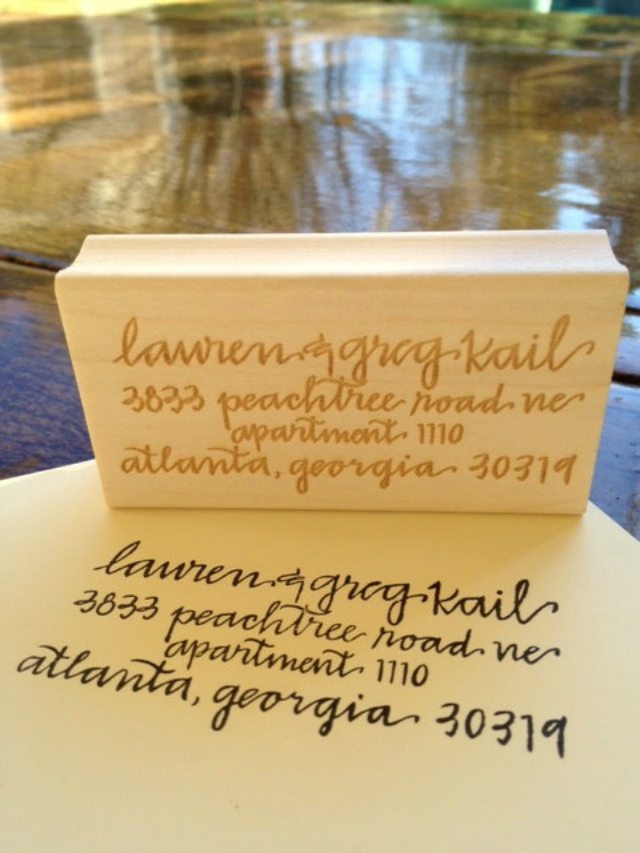 lauren & greg kail
3833 peachtree road ne
apartment 1110
atlanta, georgia 30319
lauren & greg kail
3833 peachtree road ne
apartment 1110
atlanta, georgia 30319